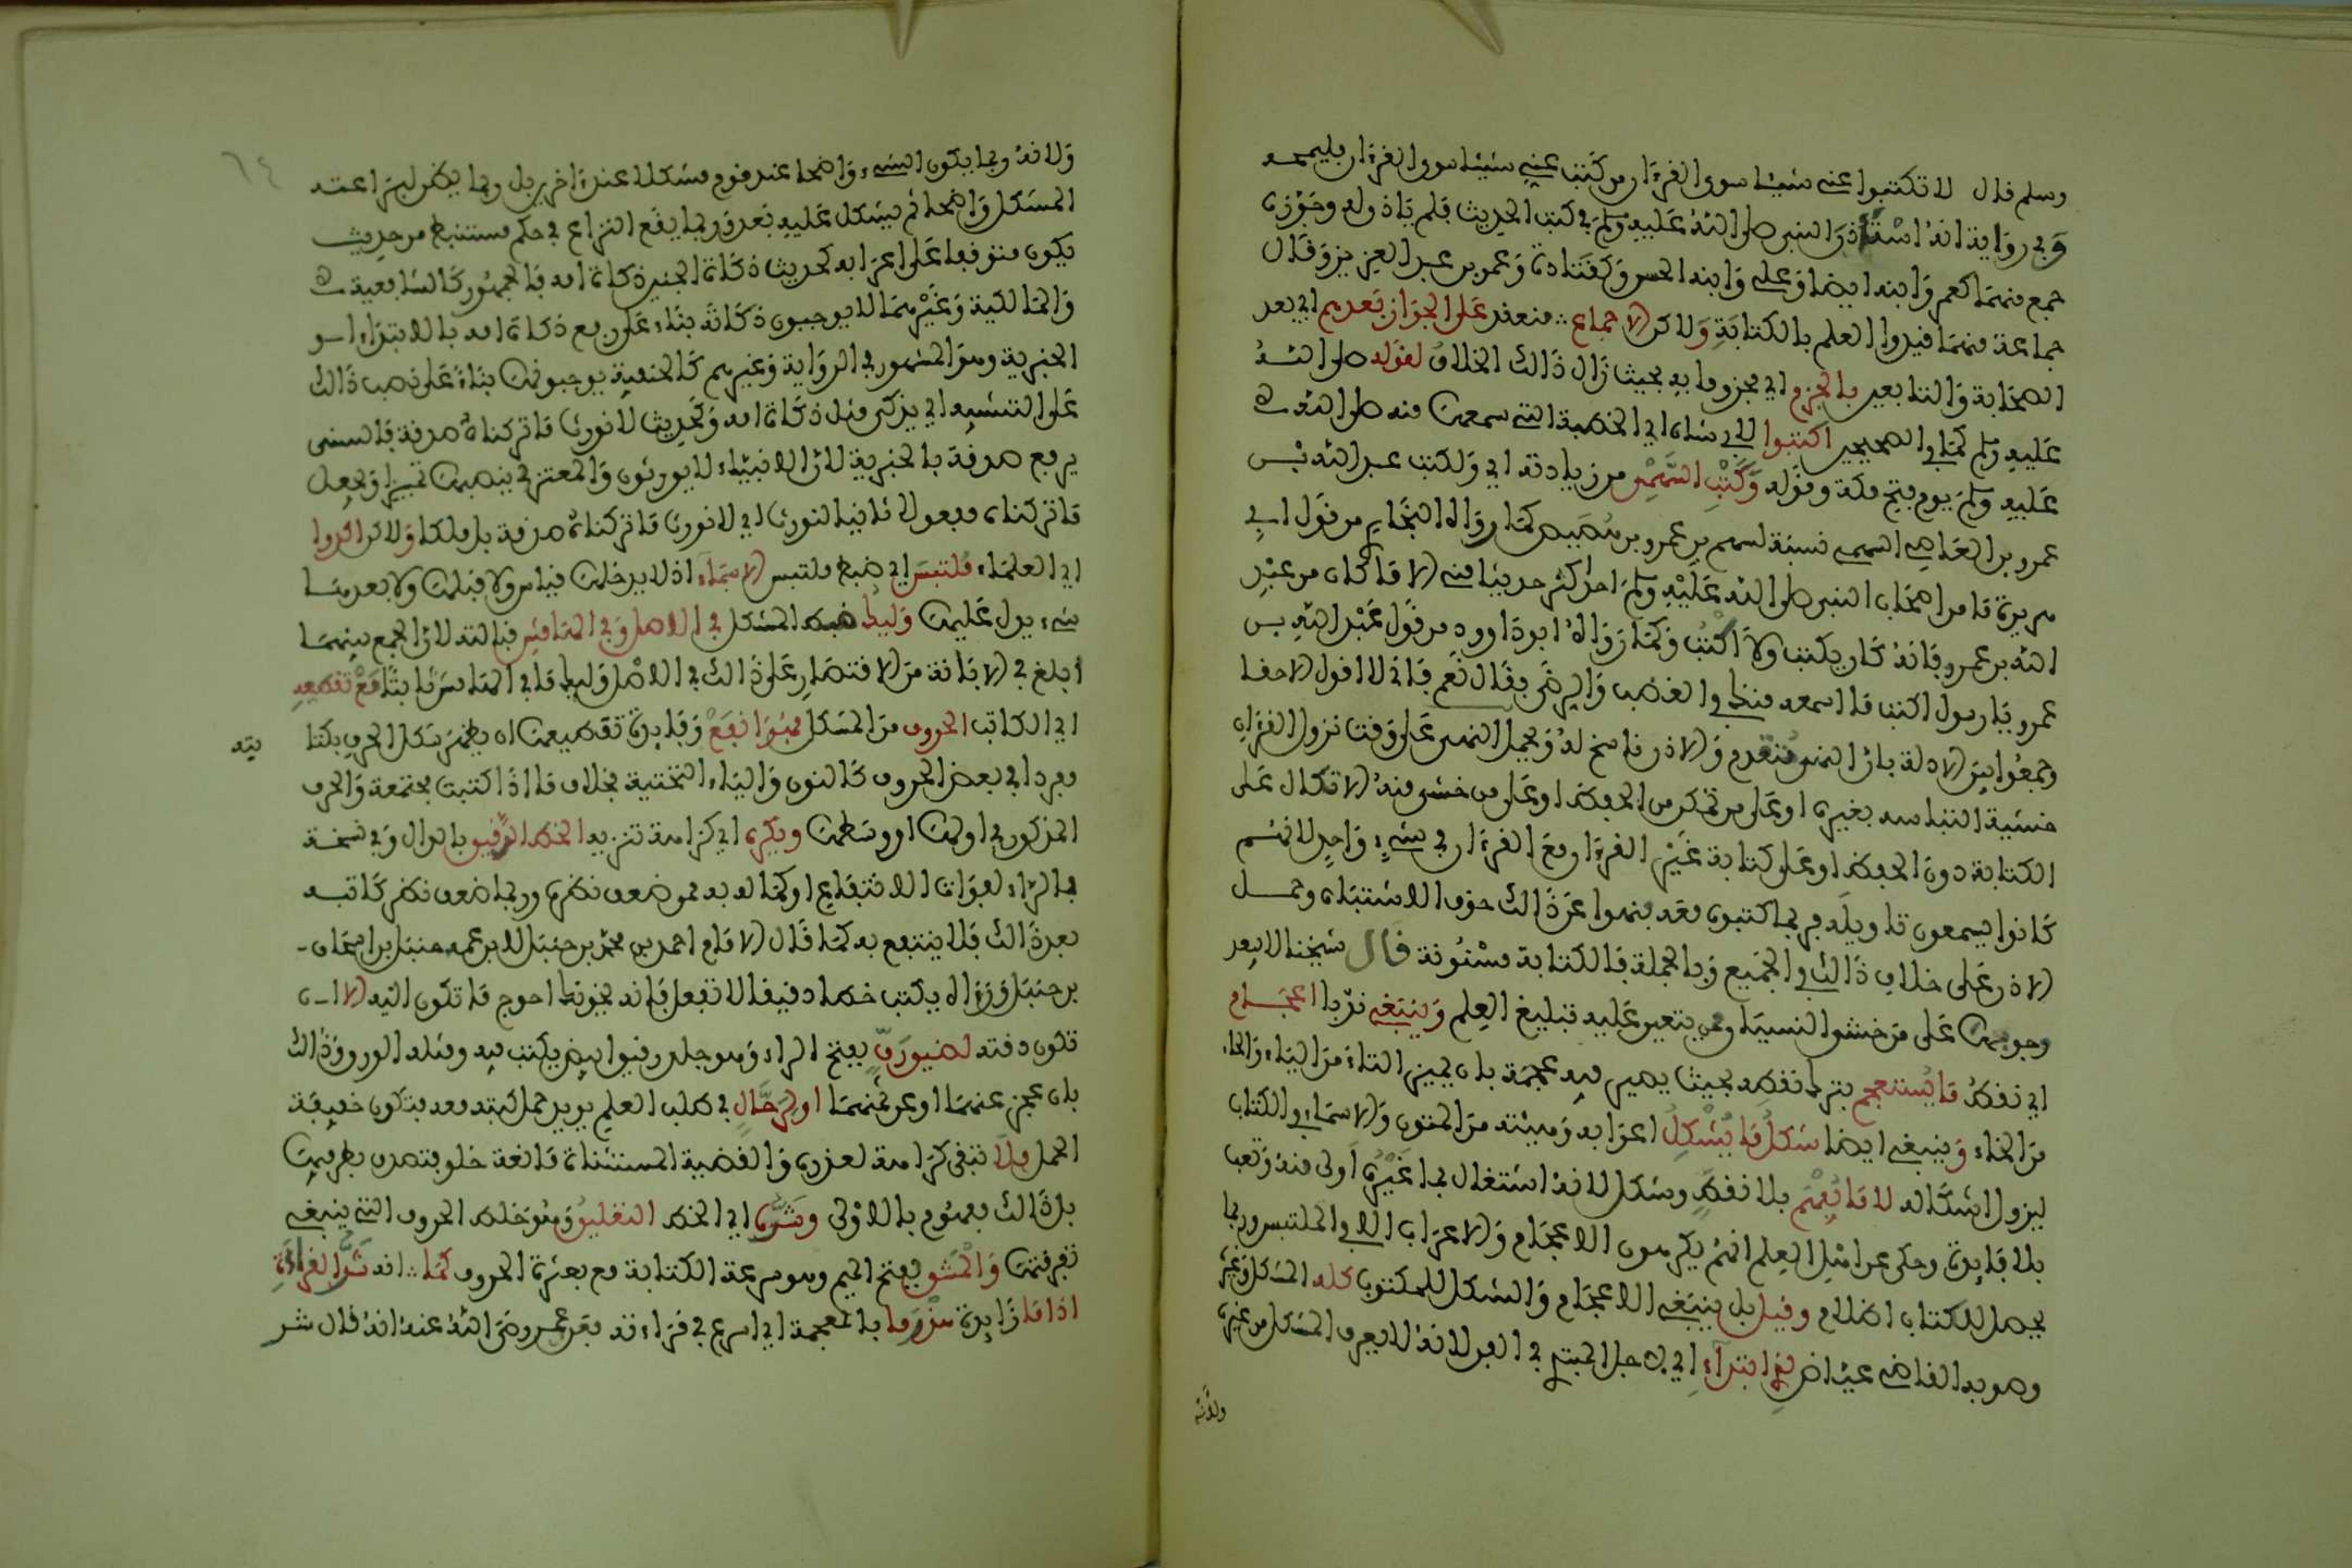 وسلم قال لا تكتبوا عني شيئا سوى القرءان من كتب عني شيئا سوى القرءان فليمحه
وفي رواية انه استأذن النبي صلى الله عليه وسلم في كتب الحديث فلم ياذن له وجوزه
جمع منهما كعمر وابنه ايضا وعلي وابنه الحسن وكقتادة وعمر بن عبد العزيز وقال
جماعة منهما قيدوا العلم بالكتابة ولاكن الاجماع منعقد على الجواز بعدهم اي بعد
الصحابة والتابعين بالجزم اي مجزوما به بحيث زال ذالك الخلاف لقوله صلى الله
عليه وسلم كما في الصحيحين اكتبوا لابي شاه اي الخطبة التي سمعها منه صلى الله
عليه وسلم يوم فتح مكة وقوله وكتب السهمي من زيادته اي ولكتب عبد الله بن
عمرو بن العاصي السهمي نسبة لسهم بن عمرو بن هصيص كما رواه البخاري من قول ابي
هريرة ما من اصحاب النبي صلى الله عليه وسلم احد اكثر حديثا مني الا ما كان من عبد
الله بن عمرو فانه كان يكتب ولا اكتب وكما رواه ابو داوود من قول عبد الله بن
عمرو يا رسول اكتب ما اسمعه منك في الغضب والرضى فقال نعم فاني لا اقول الا حقا
وجمعوا بين الادلة بان النهي متقدم والاذن ناسخ له وبحمل النهي على وقت نزول القرءان
خشية التباسه بغيره او على من تمكن من الحفظ او على من خشي منه الاتكال على
الكتابة دون الحفظ او على كتابة غير القرءان مع القرءان في شيء واحد لانهم
كانوا يسمعون تاويله فربما كتبوه معه فنهوا عن ذالك خوف الاشتباه وحمل
الاذن على خلاف ذالك في الجميع وبالجملة فالكتابة مسنونة قال شيخنا لا يبعد
وجوبها على من خشى النسيان ممن يتعين عليه تبليغ العلم وينبغي ندبا اعجام
اي نقط ما يستعجم بترك نقطه بحيث يصير فيه عجمة بان يميز التاء من الياء والحاء
من الخاء وينبغي ايضا شكل ما يشكل اعرابه وهيئته من المتون والاسماء في الكتاب
ليزول اشكاله لا ما يفهم بلا نقط وشكل لانه اشتغال بما غيره اولى منه وتعب
بلا فايدة وحكي عن اهل العلم انهم يكرهون الاعجام والاعراب الا في الملتبس وربما
يحصل للكتاب اظلام وقيل بل ينبغي الاعجام والشكل للمكتوب كله المشكل وغيره
وصوبه القاضي عياض لذي ابتداء اي لاجل المبتدي في الفن لانه لا يعرف المشكل من غيره
ولانه
ولانه ربما يكون الشيء واضحا عند قوم مشكلا عند اخرين بل ربما يظن لبراعته
المشكل واضحا ثم يشكل عليه بعد وربما يقع النزاع في حكم مستنبط من حديث
يكون متوقفا على اعرابه كحديث ذكاة الجنين ذكاة امه فالجمهور كالشافعية
والمالكية وغيرهما لا يوجبون ذكاته بناء على رفع ذكاة امه بالابتداء او
الخبرية وهو المشهور في الرواية وغيرهم كالحنفية يوجبونها بناء على نصب ذالك
على التشبيه اي يذكى مثل ذكاة امه وكحديث لا نورث ما تركناه صدقة فالسني
يرفع صدقة بالخبرية لان الانبياء لا يورثون والمعتزلي ينصبها تمييزا ويجعل
ما تركناه مفعولا ثانيا لنورث اي لا نورث ما تركناه صدقة بل ملكا ولاكن اكدوا
اي العلماء ملتبس اي ضبط ملتبس الاسماء اذ لا يدخلها قياس ولا قبلها ولا بعدها
شيء يدل عليها وليك ضبط المشكل في الاصل وفي الهامش قبالته لان الجمع بينهما
ابلغ في الابانة من الاقتصار على ذالك في الاصل وليك ما في الهامش بانا مع تقطيعه
اي الكاتب الحروف من المشكل فهو انفع وفايدة تقطيعها ان يظهر شكل الحرف بكتا
بته
مفردا في بعض الحروف كالنون والياء التحتية بخلاف ما اذا كتبت مجتمعة والحرف
المذكور في اولها او وسطها ويكره اي كراهة تنزيه الخط الدقيق بالدال وفي نسخة
بالراء لفوات الانتفاع او كماله به لمن ضعف نظره وربما ضعف نظر كاتبه
بعد ذالك فلا ينتفع به كما قال الامام احمد بن محمد بن حنبل لابن عمه حنبل بن اسحاق
بن حنبل ورءاه يكتب خطا دقيقا لا تفعل فانه يخونك احوج ما تكون اليه الا ان
تكون دقته لضيق رق بفتح الراء وهو جلد رقيق ابيض يكتب فيه ومثله الورق وذالك
بان عجز عنهما او عن ثمنهما او لرحال في طلب العلم يريد حمل كتبه معه فتكون خفيفة
الحمل فلا تبقى كراهة لعذره والقضية المستثناة مانعة خلو فتصدق بطرفيها
بل ذالك مفهوم بالاولى وشره اي الخط التعليق وهو خلط الحروف التي ينبغي
تفرقتها والمشق بفتح الميم وهو سرعة الكتابة مع بعثرة الحروف كما انه شر القراءة
اذا ما زايدة هذرما بالمعجمة اي اسرع في قراءته فعن عمر رضي الله عنه انه قال شر